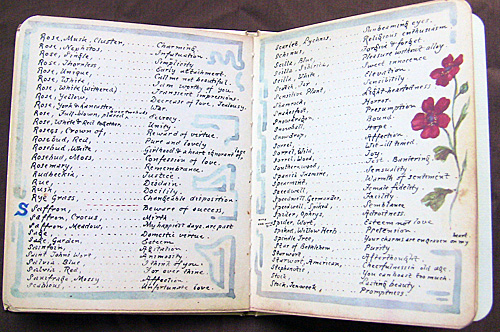 Rose, Musk, Cluster, Charming.
Rose, Nephitos Infatuation.
Rose, Single, Simplicity
Rose, Thornless Early attachment.
Rose, Unique, Call me not beautiful.
Rose, White I am worthy of you.
Rose, White (withered) Transient impressions.
Rose, Yellow, Decrease of love. Jealousy.
Rose, York & Lancaster, War.
Rose, Full-blown, placed over two buds Secrecy.
Rose, White & Red together, Unity
Roses, Crown of, Reward of virtue.
Rosebud, Red, Pure and lovely
Rosebud, White, Girlhood & a heart ignorant of love
Rosebud, Moss, Confession of love.
Rosemary, Remembrance.
Rudbeckia, Justice
Rue, Disdain
Rush, Docility.
Rye Grass, Changeable disposition
S Saffron, Beware of success,
Saffron, Crocus, Mirth
Saffron, Meadow, My happiest days are past
Sage, Domestic virtue
Sage, Garden, Esteem
Sainfoin, Agitation
Saint John's Wort, Animosity
Salvia, Blue I think of you.
Salvia, Red, For ever thine
Saxifrage, Mossy Affection
Scabious, Unfortunate love.
Scarlet, Lychnis, Sunbeaming eyes.
Schinus, Religious enthusiasm
Forgive & forget
Scilla, Siberica, Pleasure without alloy
Scilla, White, Sweet innocence
Scotch Fir Elevation
Sensitive Plant, Sensibility
Shamrock, Light-heartedness
Snakesfoot, Horror.
Snapdragon, Presumption
Snowball, Bound.
Snowdrop, Hope
Sorrel, Affection
Sorrel, Wild, Wit ill timed.
Sorrel, Wood, Joy
Southernwood, Jest. Bantering.
Spanish Jasmine, Sensuality
Spearmint, Warmth of sentiment
Speedwell, Female fidelity
Speedwell, Germander, Facility
Speedwell, Spiked, Semblance
Spider, Ophrys, Adroitness.
Spider, Wort, Esteem not love
Spiked, Willow Herb Pretension
Spindle Tree, Your charms are engraven on my heart
Star of Bethlehem Purity
Starwort Afterthought
Starwort, American, Cheerfulness in old age
Stephanotis You can boast too much.
Stock, Lasting beauty
Stock, Ten week, Promptness.